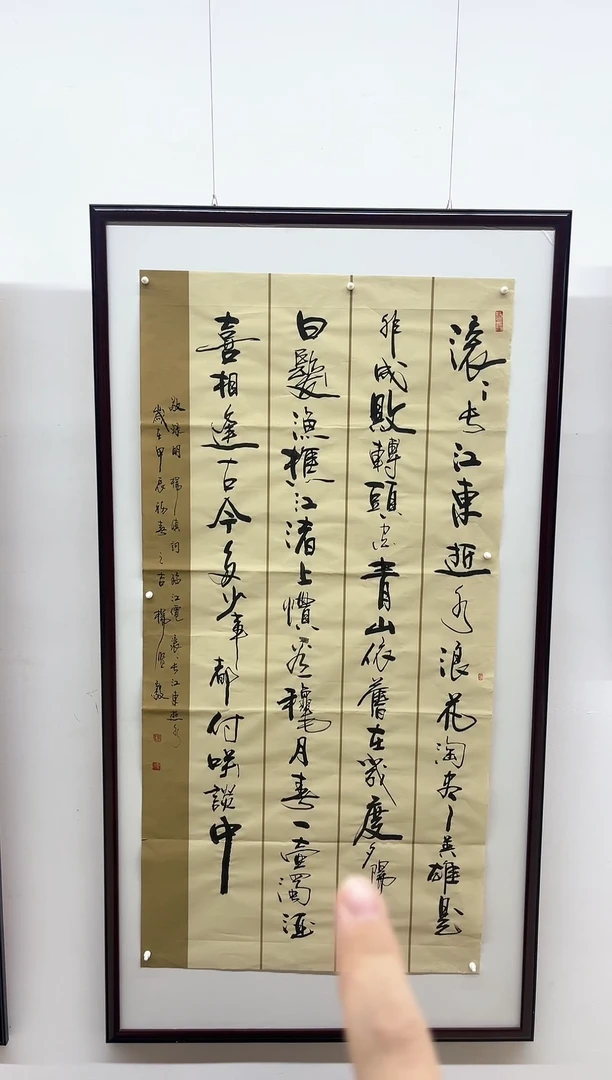 滚〻长江東逝水浪花淘尽英雄是
非成敗轉頭空青山依舊在幾度夕陽
白髮漁樵江渚上慣看龝月春一壺濁酒
喜相逢古今多少事都付咲談中
敬録明楊慎词臨江僊滚〻长江東逝水
歲在甲辰初春之吉楊